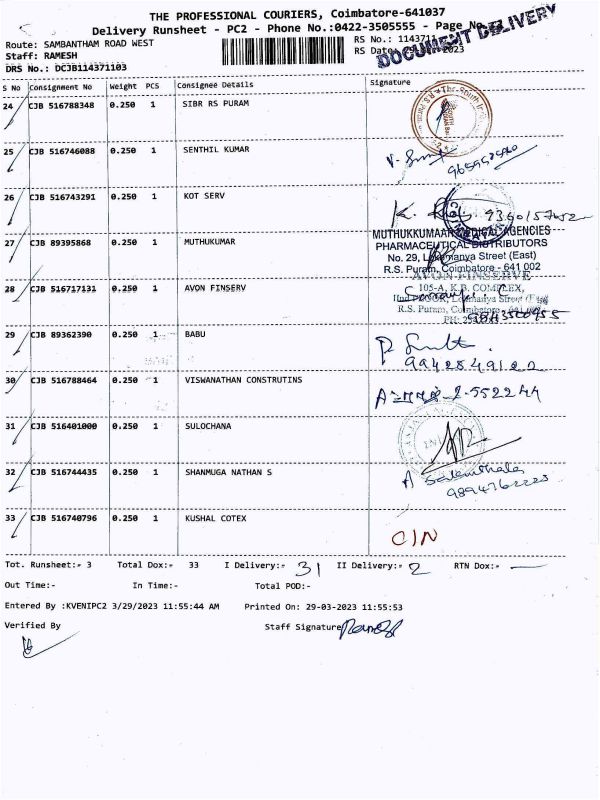 THE PROFESSIONAL COURIERS, Coimbatore-641037
Delivery Runsheet - PC2 - Phone No.:0422-3505555 - Page No.
DOCUMENT DELIVERY
Route: SAMBANTHAM ROAD WEST
RS No.: 1143711
Staff: RAMESH
RS Date: 2023
DRS No.: DCJB114371103
S No Consignment No Weight PCS Consignee Details Signature
24 CJB 516788348 0.250 1 SIBR RS PURAM
25 CJB 516746088 0.250 1 SENTHIL KUMAR
26 CJB 516743291 0.250 1 KOT SERV
27 CJB 89395868 0.250 1 MUTHUKUMAR
MUTHUKKUMAAR MEDICAL AGENCIES
PHARMACEUTICAL DISTRIBUTORS
No. 29, Lokmanya Street (East)
R.S. Puram, Coimbatore - 641 002
28 CJB 516717131 0.250 1 AVON FINSERV
AVON FINSERVE
105-A, K.B. COMPLEX,
IInd FLOOR, Lokmanya Street
R.S. Puram, Coimbatore
29 CJB 89362390 0.250 1 BABU
30 CJB 516788464 0.250 1 VISWANATHAN CONSTRUTINS
31 CJB 516401000 0.250 1 SULOCHANA
32 CJB 516744435 0.250 1 SHANMUGA NATHAN S
33 CJB 516740796 0.250 1 KUSHAL COTEX
C/N
Tot. Runsheet:- 3 Total Dox:- 33 I Delivery:- 31 II Delivery:- 2 RTN Dox:- —
Out Time:- In Time:- Total POD:-
Entered By :KVENIPC2 3/29/2023 11:55:44 AM Printed On: 29-03-2023 11:55:53
Verified By Staff Signature